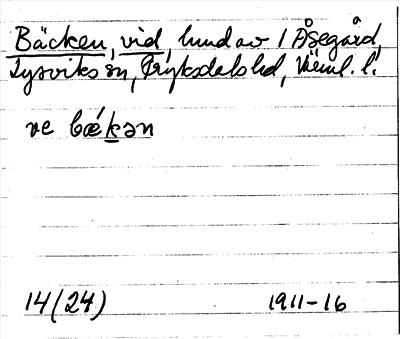 Bäcken, vid, lund av 1 Åsegård,
Lysviks sn, Fryksdals hd, Värml. l.
ve bǽkən
14(24) 1911-16